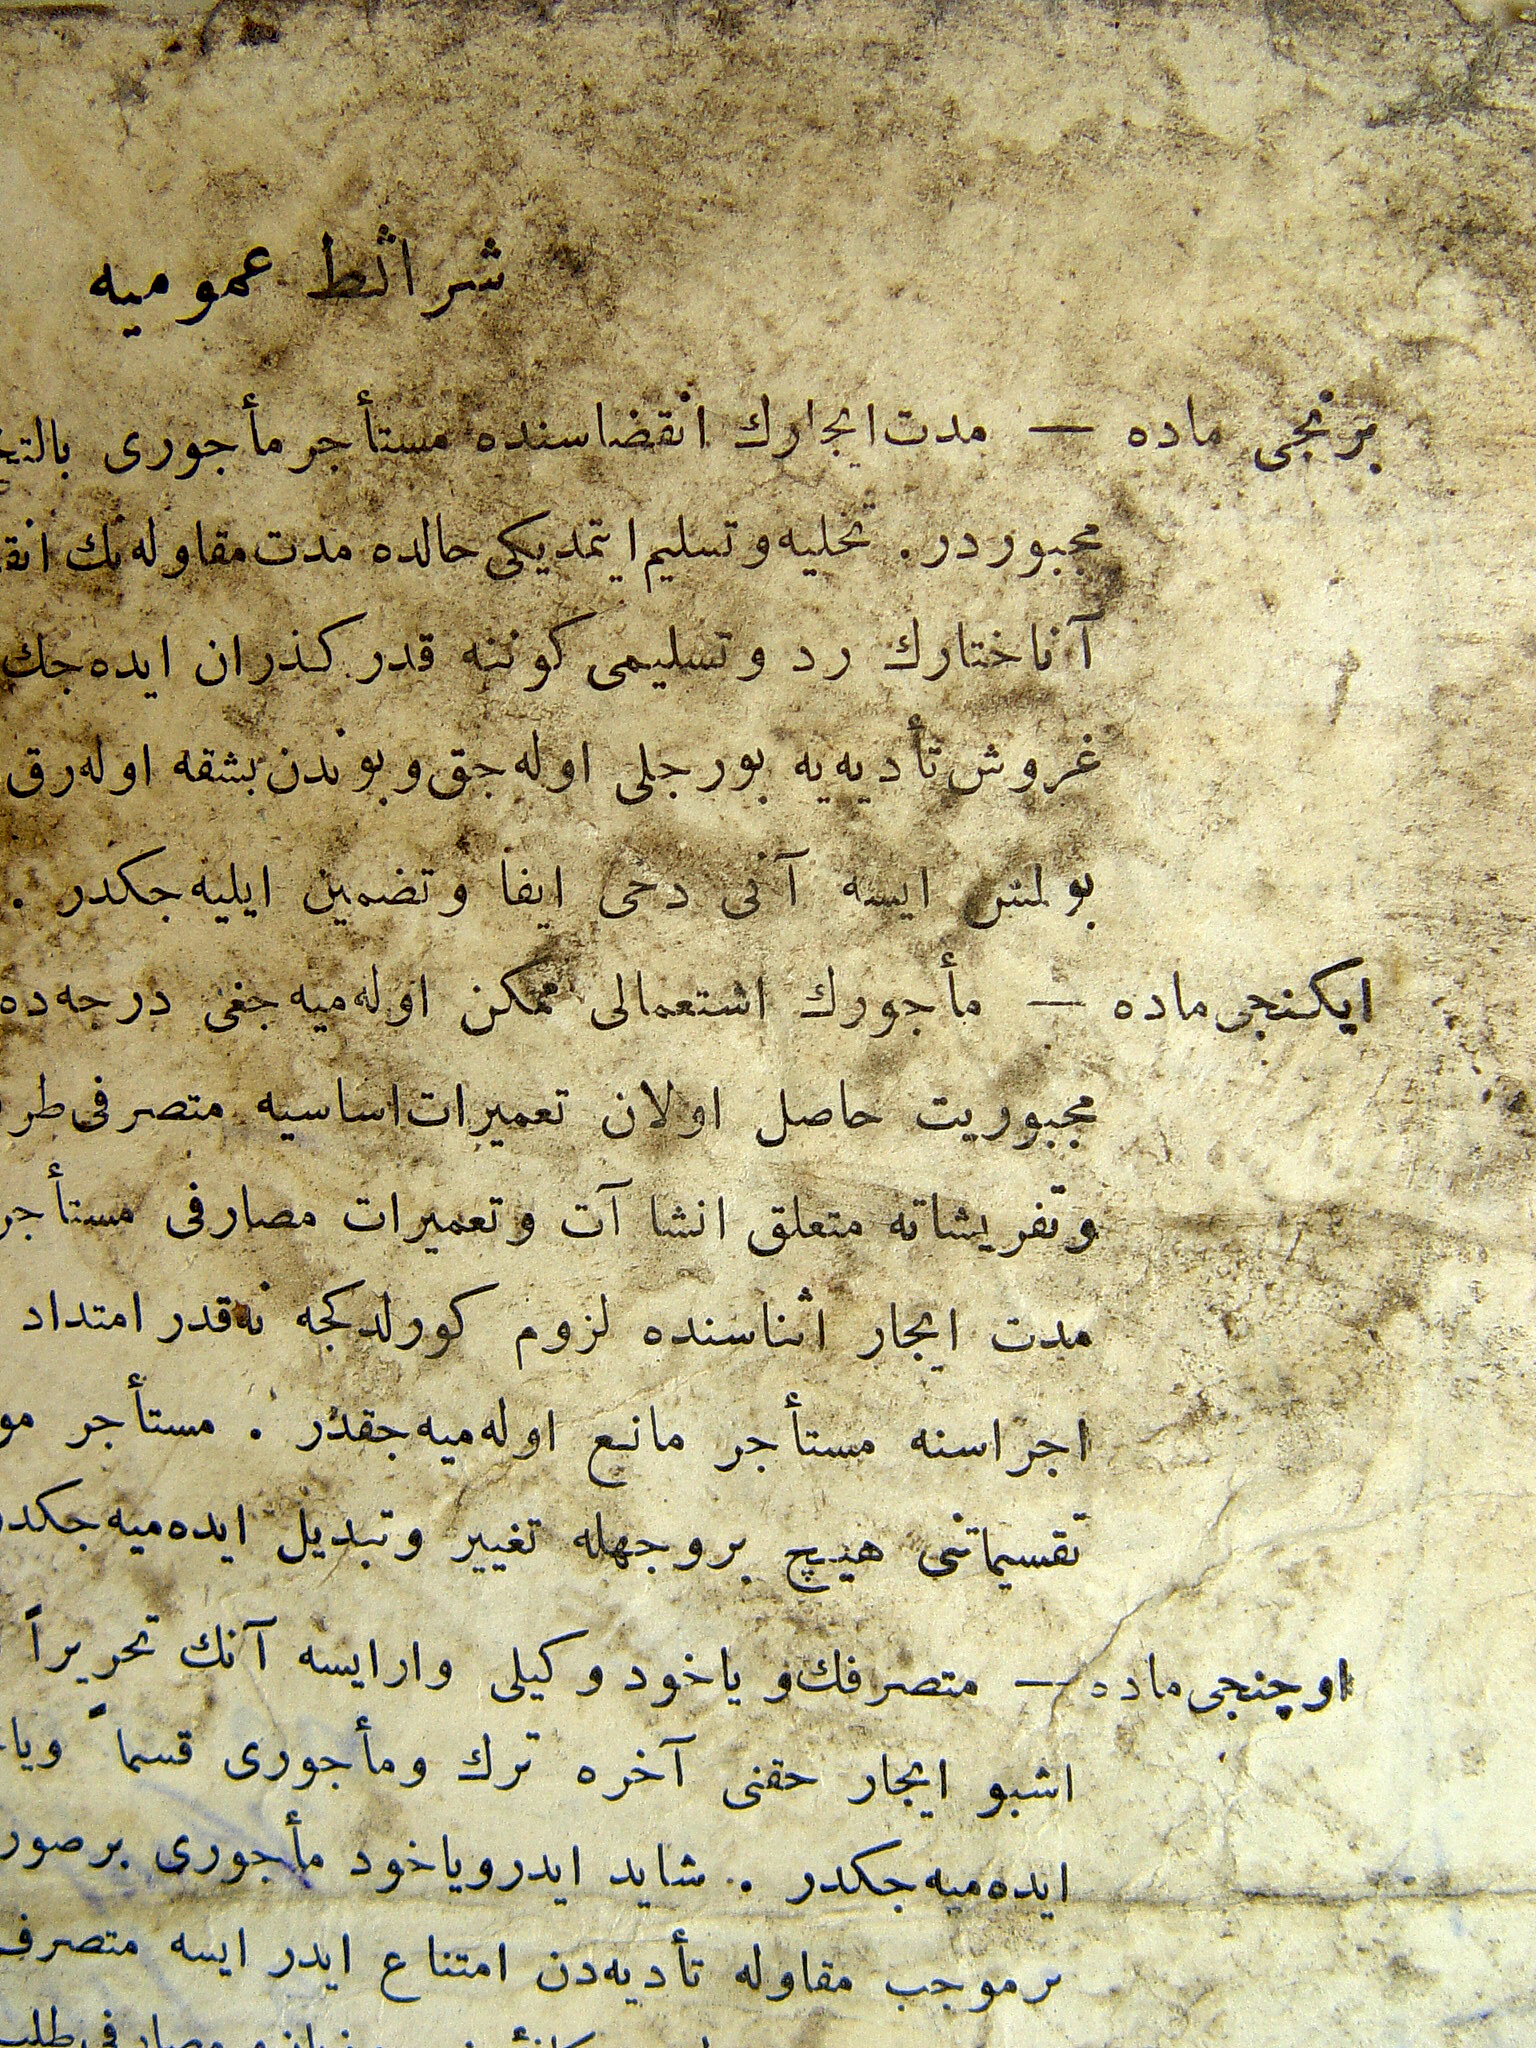 شرائط عمومیه
برنجی ماده — مدت ایجارك انقضاسنده مستأجر مأجوری
مجبوردر . تخلیه و تسلیم ایتمدیکی حالده مدت مقاوله‌نك
آناختارك رد و تسلیمی کوننه قدر کذران ایده‌جك
غروش تأدیه‌یه بورجلی اوله‌جق و بوندن بشقه اوله‌رق
بولمش ایسه آنی دخی ایفا و تضمین ایلیه‌جکدر .
ایکنجی ماده — مأجورك استعمالی ممکن اوله‌میه‌جغی درجه‌ده
مجبوریت حاصل اولان تعمیرات اساسیه متصرفی
وتفریشاته متعلق انشاآت و تعمیرات مصارفی مستأجر
مدت ایجار اثناسنده لزوم کورلدکجه نه‌قدر امتداد
اجراسنه مستأجر مانع اوله‌میه‌جقدر . مستأجر
تقسیماتنی هیچ بروجهله تغییر و تبدیل ایده‌میه‌جکدر
اوچنجی ماده — متصرفك و یاخود وکیلی وار ایسه آنك تحریراً
اشبو ایجار حقنی آخره ترك و مأجوری قسماً ویا
ایده‌میه‌جکدر . شاید ایدر و یاخود مأجوری
بر موجب مقاوله تأدیه‌دن امتناع ایدر ایسه متصرف